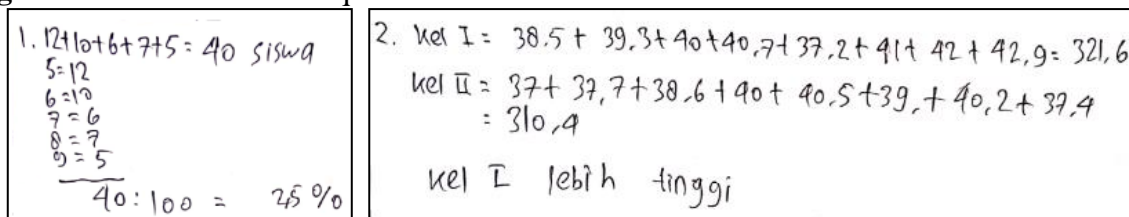 1. 12+10+6+7+5 = 40 siswa
5=12
6=10
7=6
8=7
9=5
40 : 100 = 25 %
2. Kel I = 38.5 + 39,3+40+40,7+ 37,2+ 41+ 42 + 42,9 = 321,6
Kel II = 37+ 37,7+38,6+40+ 40,5+39,+ 40,2+ 37,4
= 310,4
Kel I lebih tinggi